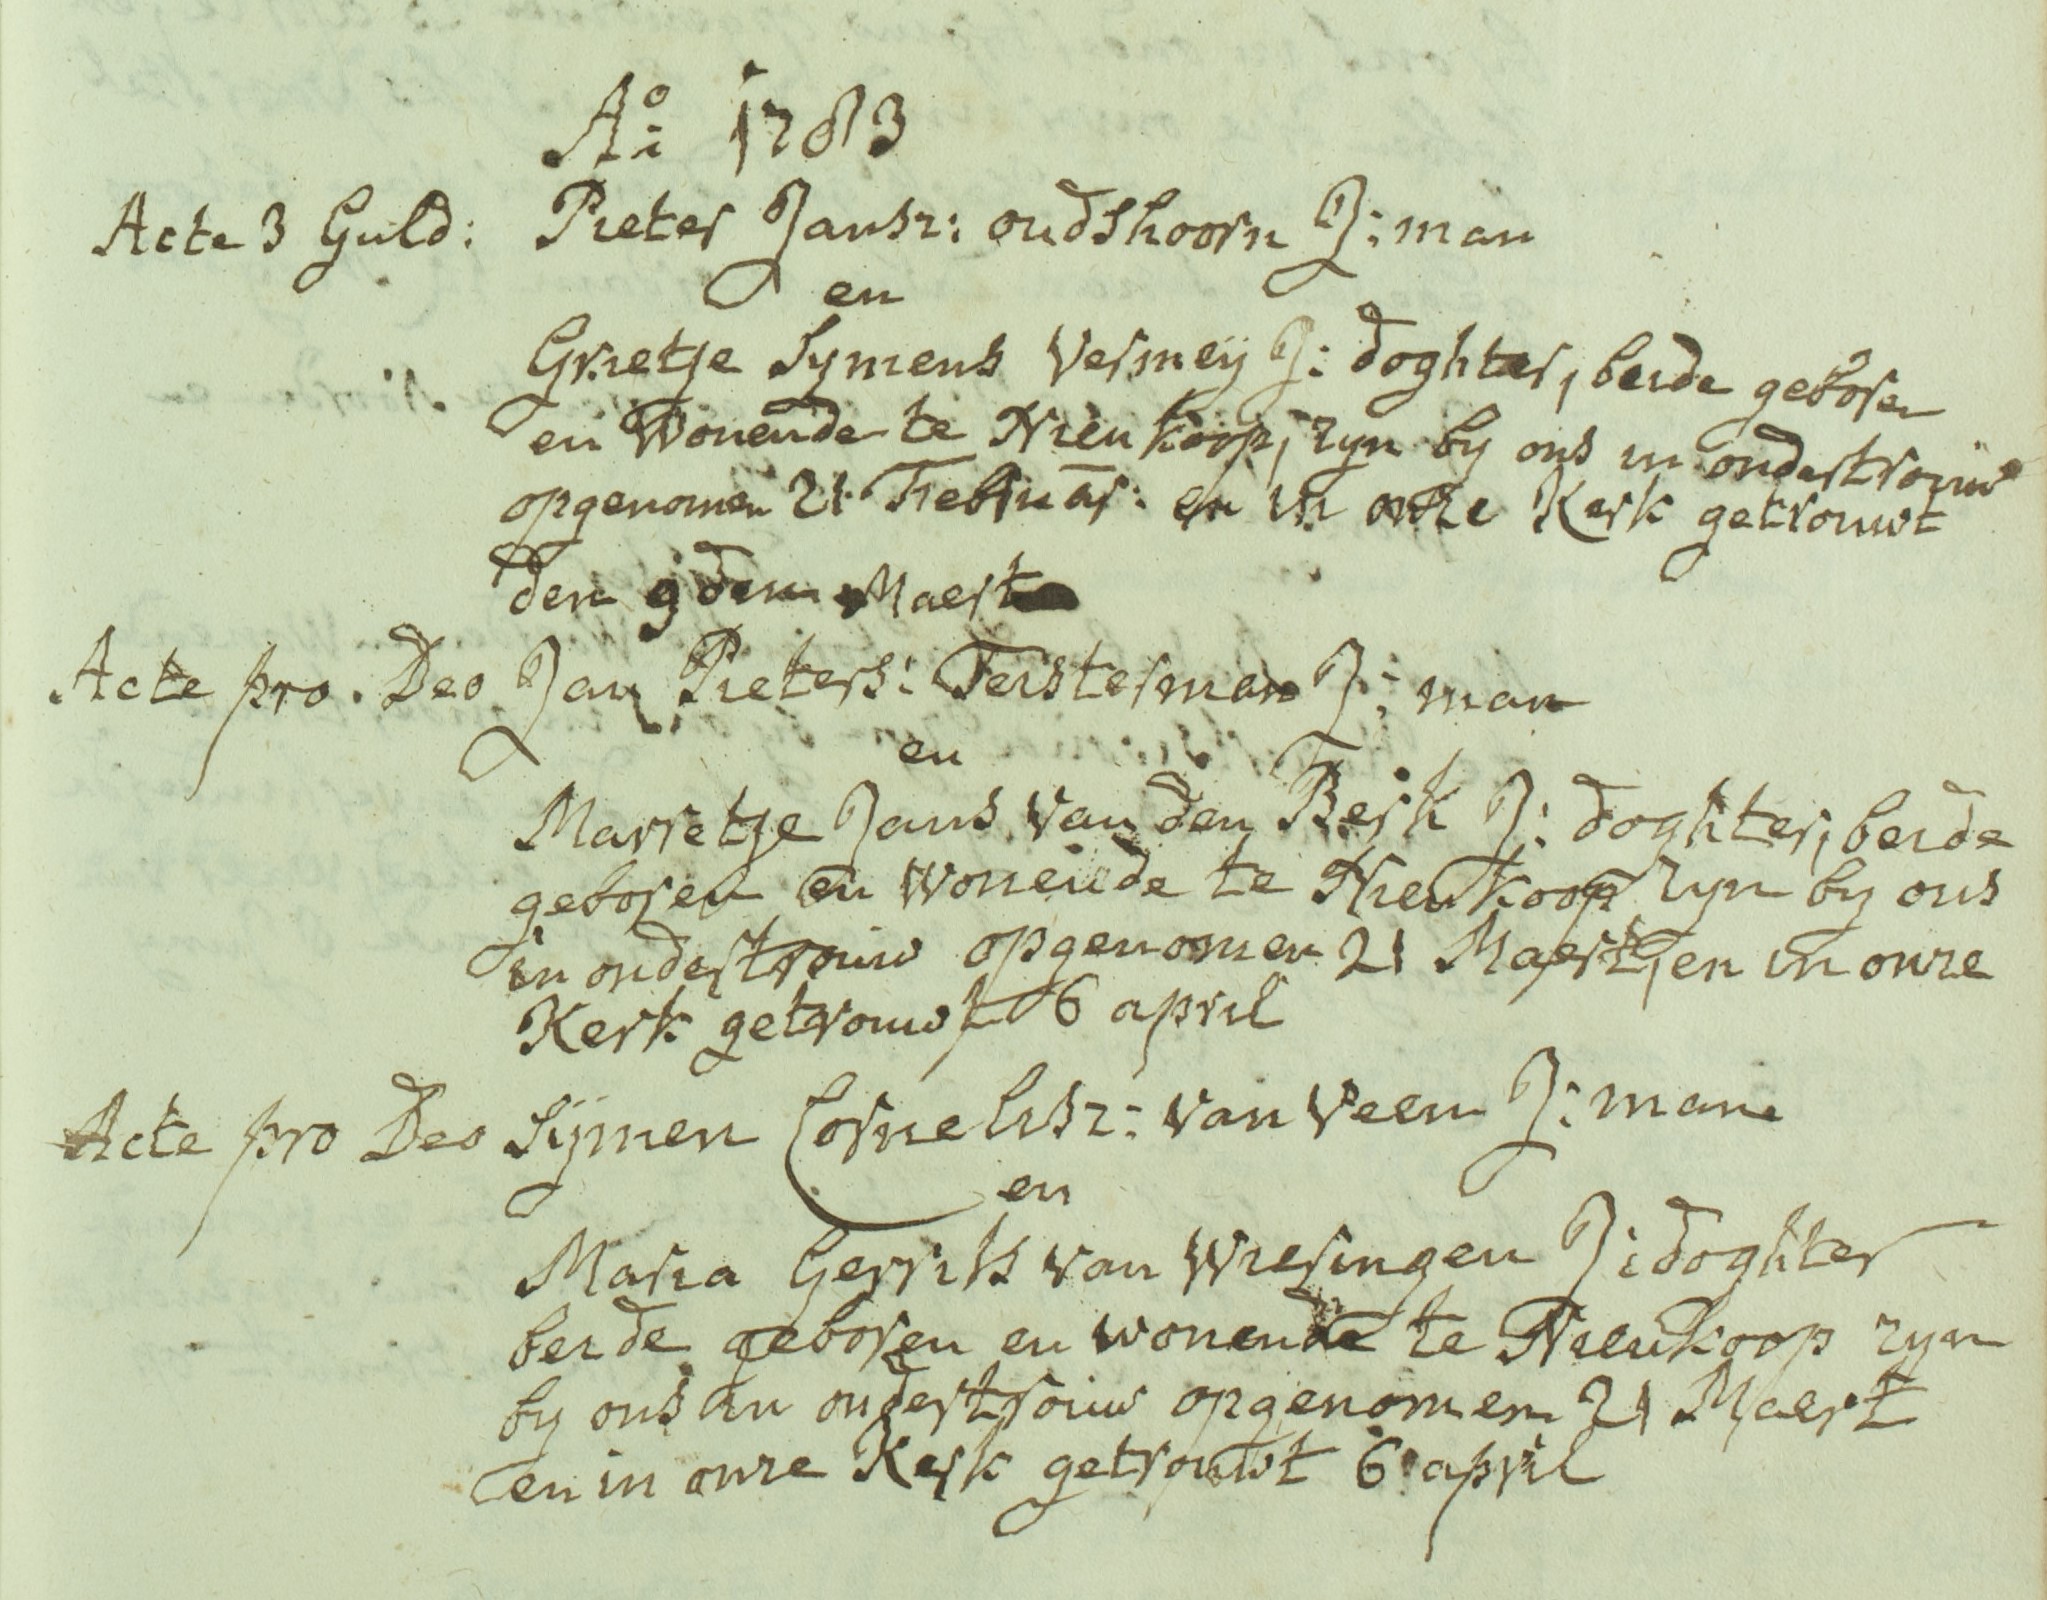 Ao: 1783
Acte 3 Guld: Pieter Jansz: oudshoorn J: man
en
Grietje Symens Vermeij J: doghter, beide geboren
en Wonende te Nieukoop, zyn by ons in ondertrouw
opgenomen 21 Februar: en in onze Kerk getrouwt
den 9 den Maert
Acte pro Deo Jan Pieters: Feisterman J: man
en
Marretje Jans van den Berk J: doghter, beide
geboren en Wonende te Nieukoop zyn by ons
in ondertrouw opgenomen 21 Maert, en in onze
Kerk getrouwt 6 april
Acte pro Deo Sijmen Cornelisz: van Veen J: man
en
Maria Gerrits van Wieringen J: doghter
beide geboren en wonende te Nieukoop zyn
by ons in ondertrouw opgenomen 21 Maert
en in onze Kerk getrouwt 6 april